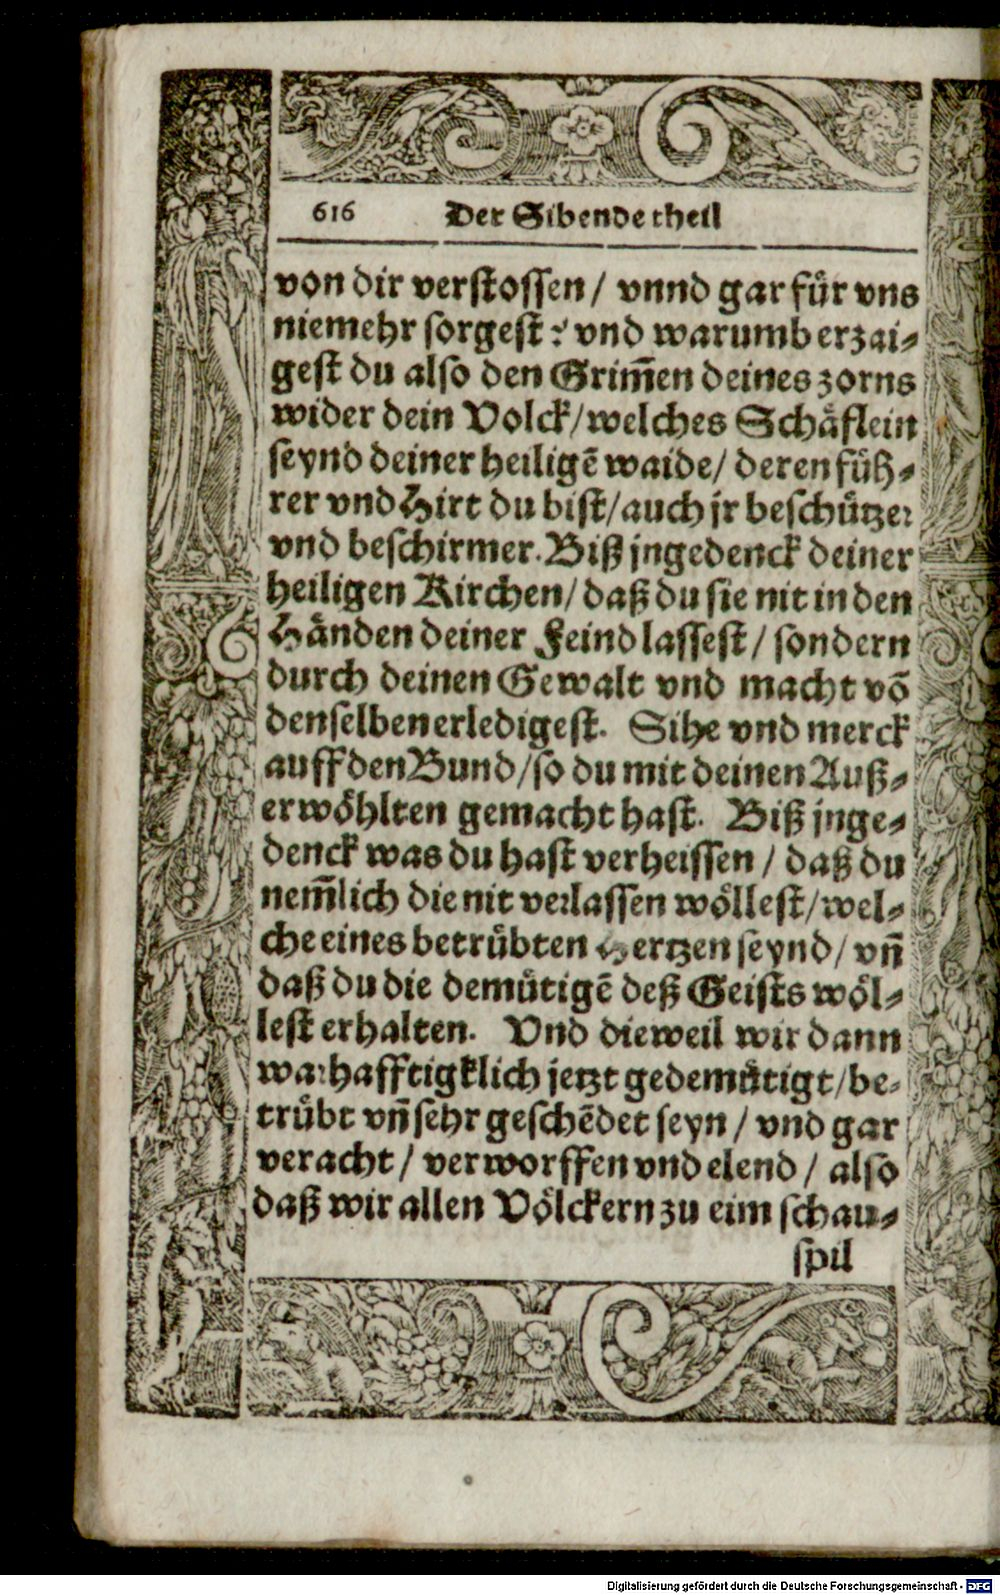 616 Der Sibende theil
von dir verstossen / vnnd gar fuͤr vns
niemehr sorgest? vnd warumb erzai⸗
gest du also den Grim̃en deines zorns
wider dein Volck/welches Schaͤflein
seynd deiner heiligẽ waide/ deren fuͤh⸗
rer vnd Hirt du bist/auch jr beschuͤtzer
vnd beschirmer. Biß jngedenck deiner
heiligen Kirchen/ daß du sie nit in den
Haͤnden deiner Feind lassest / sondern
durch deinen Gewalt vnd macht võ
denselben erledigest. Sihe vnd merck
auff den Bund/so du mit deinen Auß⸗
erwoͤhlten gemacht hast. Biß jnge⸗
denck was du hast verheissen / daß du
nem̃lich die nit verlassen woͤllest/wel⸗
che eines betruͤbten Hertzen seynd/ vñ
daß du die demuͤtigẽ deß Geists woͤl⸗
lest erhalten. Vnd dieweil wir dann
warhafftigklich jetzt gedemuͤtigt/be⸗
truͤbt vñ sehr geschẽdet seyn / vnd gar
veracht / verworffen vnd elend / also
daß wir allen Voͤlckern zu eim schau⸗
spil
Digitalisierung gefördert durch die Deutsche Forschungsgemeinschaft - DFG